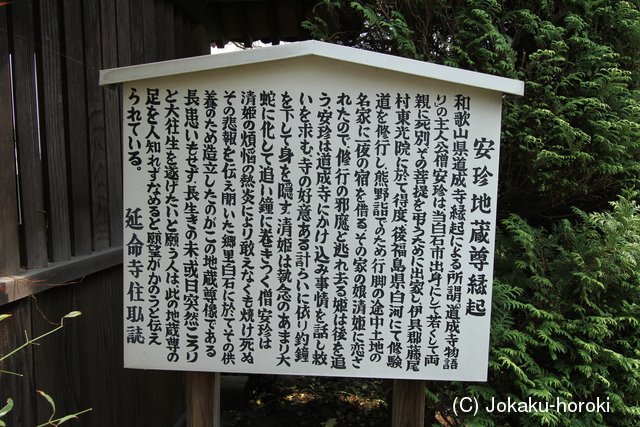 安珍地蔵尊縁起
和歌山県道成寺縁起による所謂、道成寺物語
りの主人公僧安珍は当白石市出身にして若くして両
親に死別、その菩提を弔うために出家し伊具郡藤尾
村東光院に於て得度、後福島県白河にて修験
道を修行し熊野詣でのため行脚の途中土地の
名家に一夜の宿を借る。その家の娘清姫に恋さ
れたので、修行の邪魔と逃れ去る。姫は後を追
う、安珍は道成寺にかけ込み事情を話し救
いを求む、寺の好意ある計らいに依り釣鐘
を下して身を隠す。清姫は執念のあまり大
蛇に化して追い鐘に巻きつく僧安珍は
清姫の煩悩の熱炎により敢えなくも焼け死ぬ
その悲報を伝え聞いた郷里白石に於てその供
養のため造立したのがこの地蔵尊像である
長患いもせず長生きの末或日突然ころり
と大往生を遂げたいと願う人は、此の地蔵尊の
足を人知れずなめると願望がかのうと伝え
られている。
延命寺住職誌
(C) Jokaku-horoki